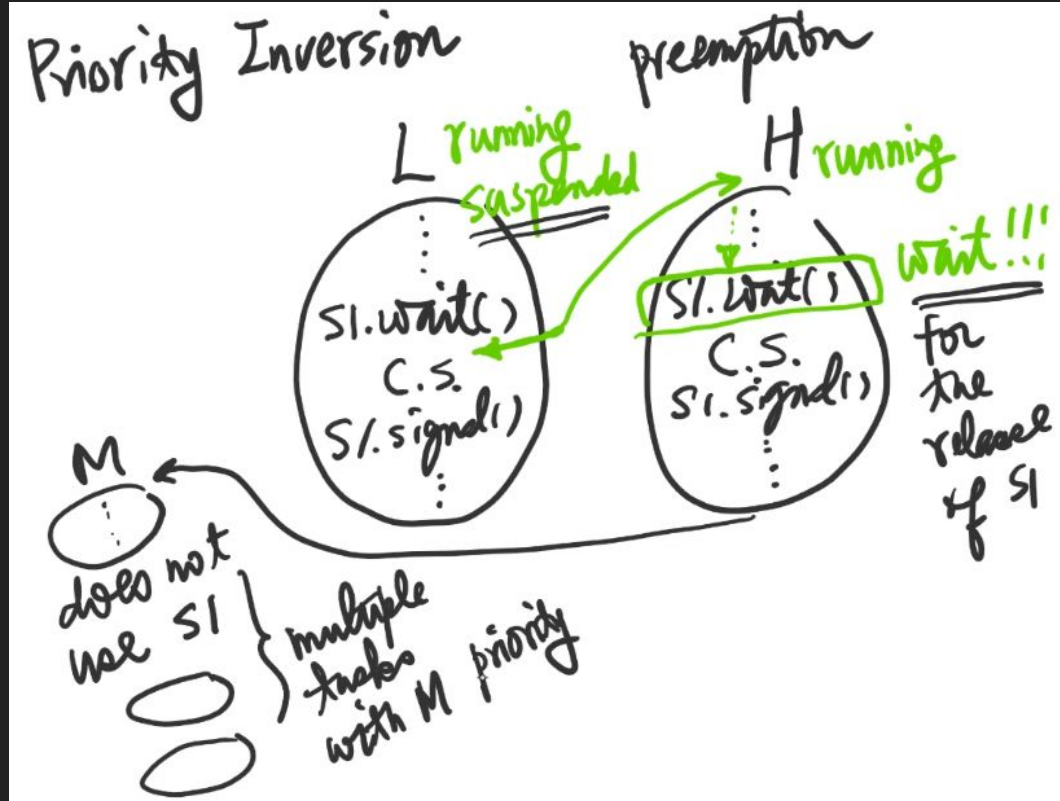 Priority Inversion
preemption
L running
suspended
S1.wait()
C.S.
S1.signal()
H running
S1.wait()
C.S.
S1.signal()
wait!!!
for
the
release
of S1
M
does not
use S1
multiple
tasks
with M priority